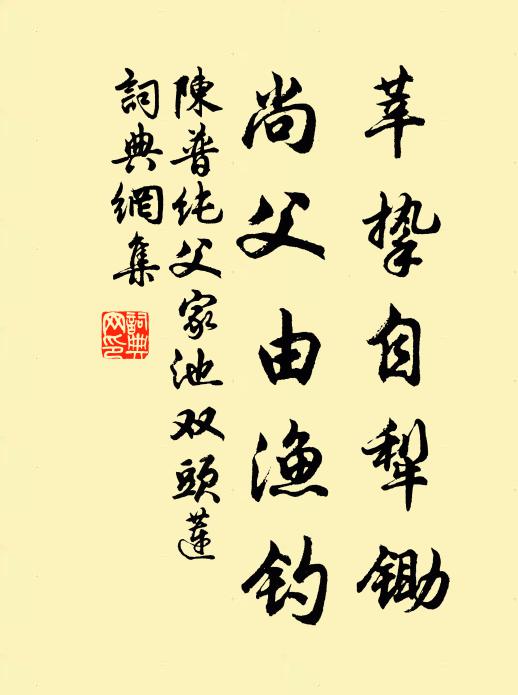 莘挚自犁锄
尚父由渔钓
陳普纯父家池双頭蓮
詞典網集
詞典網印